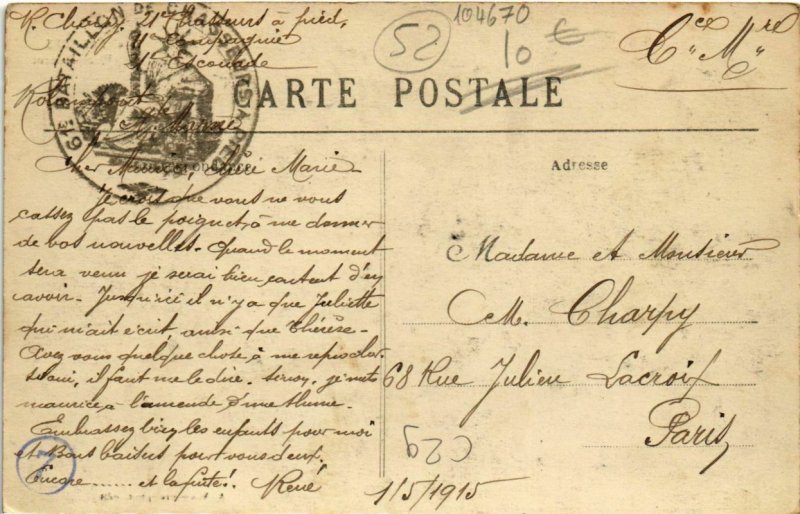 R. Charpy, 21e Chasseurs à pied,
Compagnie
Escouade
104670
52
10 €
Cce Mre
61e BATAILLON DE CHASSEURS À PIED
CARTE POSTALE
Adresse
Cher Maurice, Chère Marie
Je crois que vous ne vous
cassez pas le poignet, à me donner
de vos nouvelles. Quand le moment
sera venu je serai bien content d'en
avoir. Jusqu'ici il n'y a que Juliette
qui m'ait écrit ainsi que Thérèse.
Avez vous quelque chose à me reprocher
si oui, il faut me le dire. sinon, je mets
maurice à l'amende d'une thune.
Embrassez bien les enfants pour moi
et Bons baisers pour vous deux.
Encore ...... et la suite!
René
Madame et Monsieur
M. Charpy
68 Rue Julien Lacroix
Paris
C29
1/5/1915